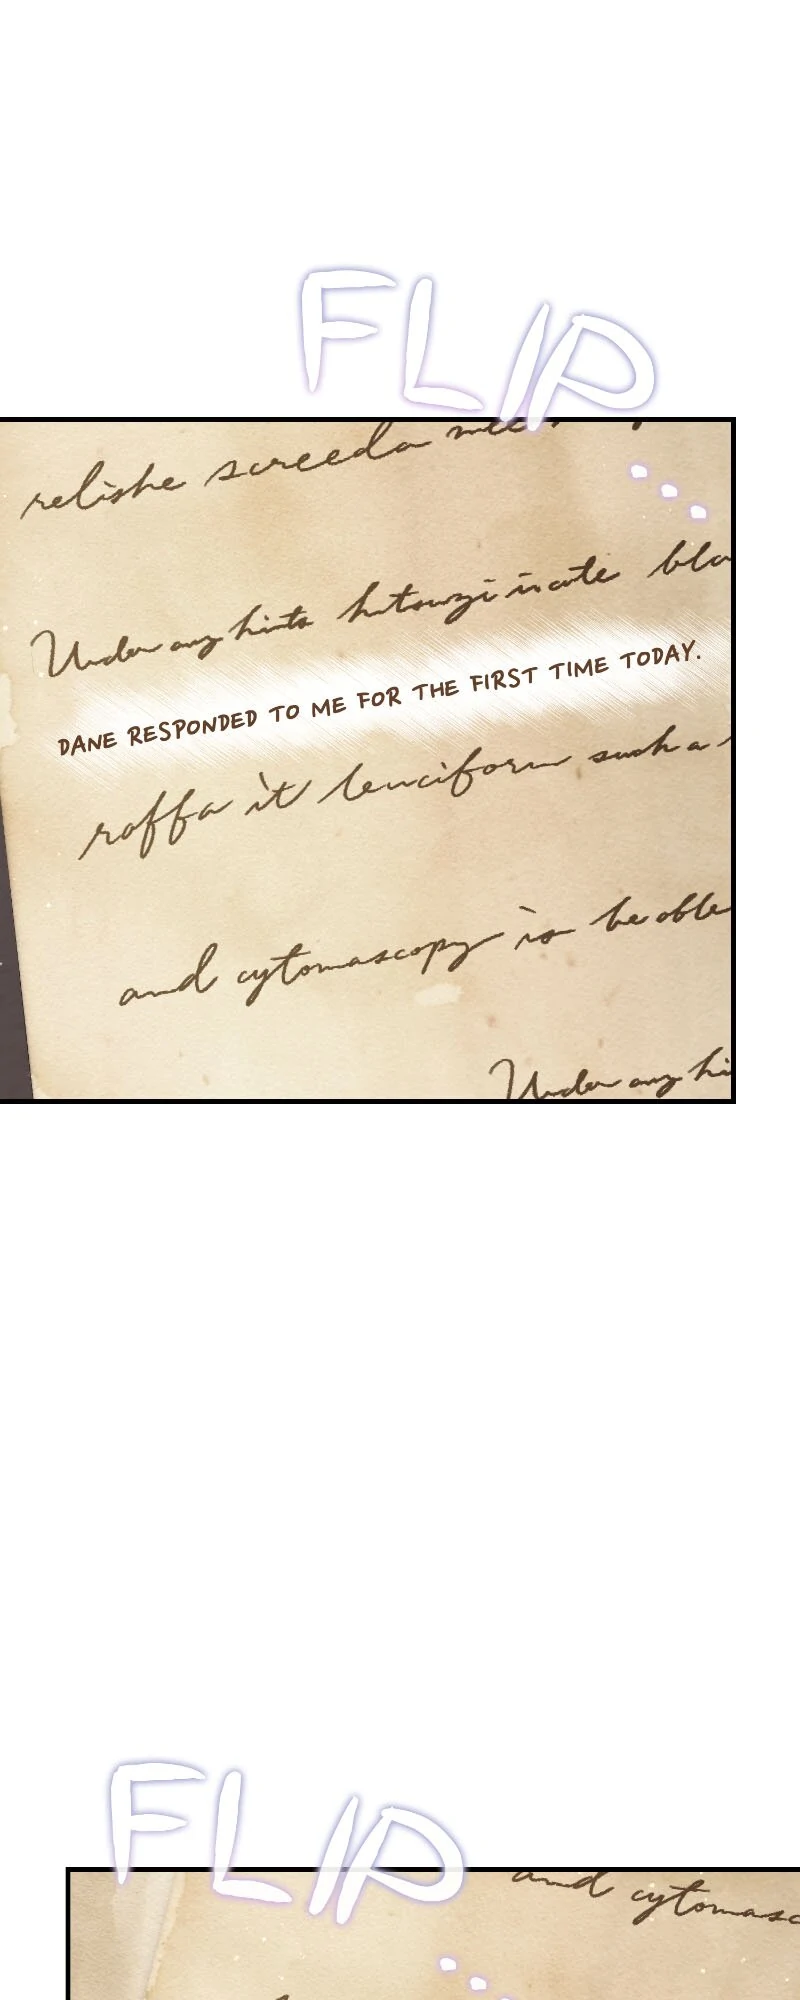 FLIP
relishe screeda
Under any hints
DANE RESPONDED TO ME FOR THE FIRST TIME TODAY.
raffa it lenciform such a
and cytomascopy is be oble
Under any hi
FLIP
and cytomasc